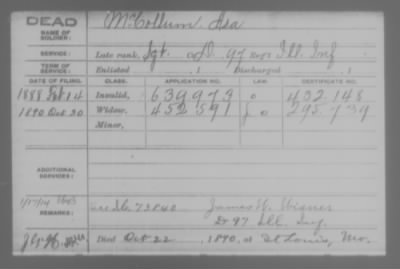 DEAD
NAME OF SOLDIER:
McCollum, Asa
SERVICE:
Late rank, Sgt. Co. D. 97 Reg't Ill. Inf
TERM OF SERVICE:
Enlisted , 1 Discharged , 1
DATE OF FILING. CLASS. APPLICATION NO. LAW. CERTIFICATE NO.
1888 14 Invalid, 639973 o 402148
1890 Oct 30 Widow, 452591 o 295739
Minor,
ADDITIONAL SERVICES:
1/17/14
REMARKS:
No. 72840 James W.
D 97 Ill. Inf.
Died Oct 22 1890, at St Louis, Mo.